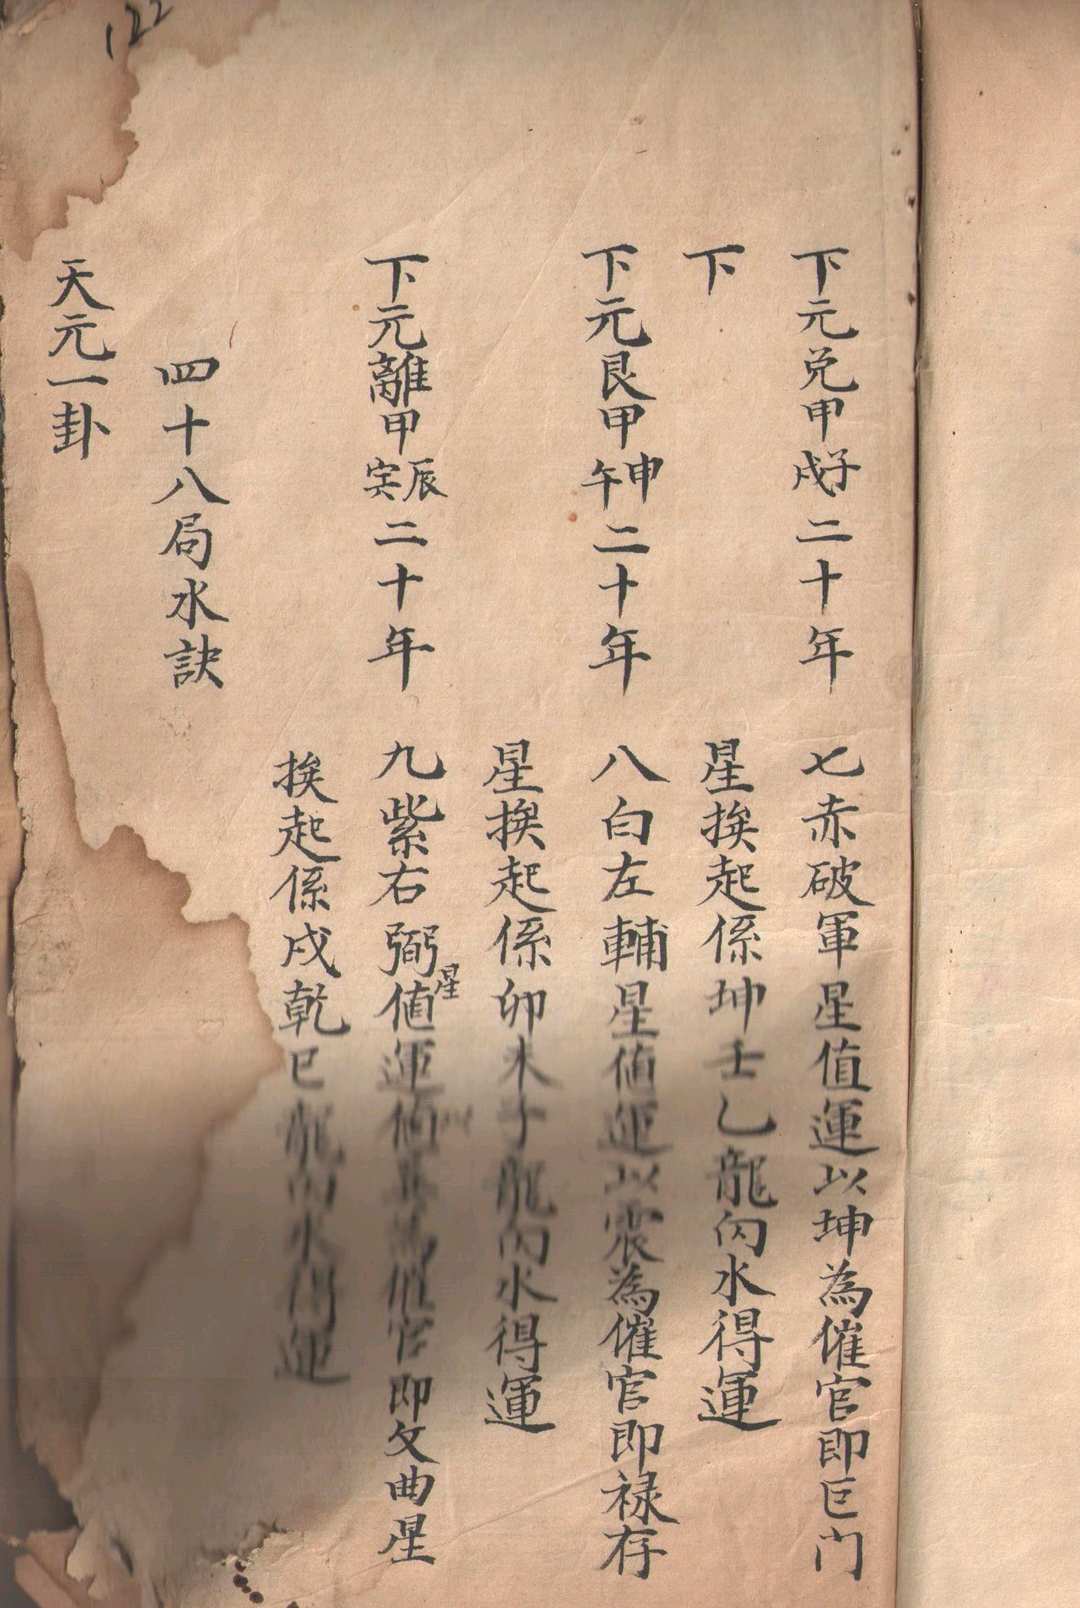 122
下元兌甲子戌二十年 七赤破軍星值運以坤為催官即巨门
下 星挨起係坤壬乙龍內水得運
下元艮甲申午二十年 八白左輔星值運以震為催官即祿存
星挨起係卯未子龍內水得運
下元離甲辰寅二十年 九紫右弼星值運 為催官即文曲星
挨起係戌乾巳龍內水得運
四十八局水訣
天元一卦